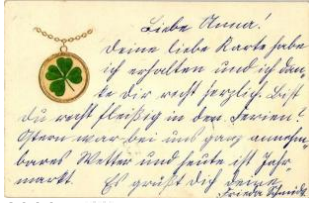 Liebe Anna!
Deine liebe Karte habe
ich erhalten und ich dan-
ke Dir recht herzlich. Bist
du recht fleißig in den Ferien?
Ostern war bei uns ganz annehm-
bares Wetter und heute ist Jahr-
markt. Es grüßt Dich deine
Frieda Schmidt